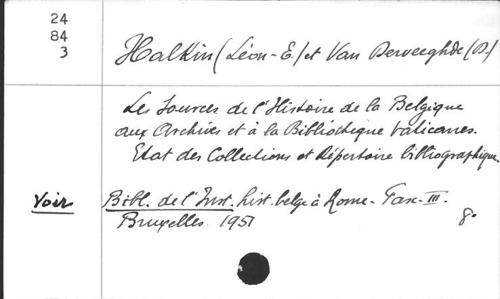 24
84
3
Halkin (Léon-E.) et Van Derveeghde (D.)
Les Sources de l'Histoire de la Belgique
aux Archives et à la Bibliothèque Vaticanes.
Etat des Collections et Répertoire bibliographique.
Voir Bibl. de l'Inst. hist. belge à Rome - Fasc. III.
Bruxelles 1951 8º